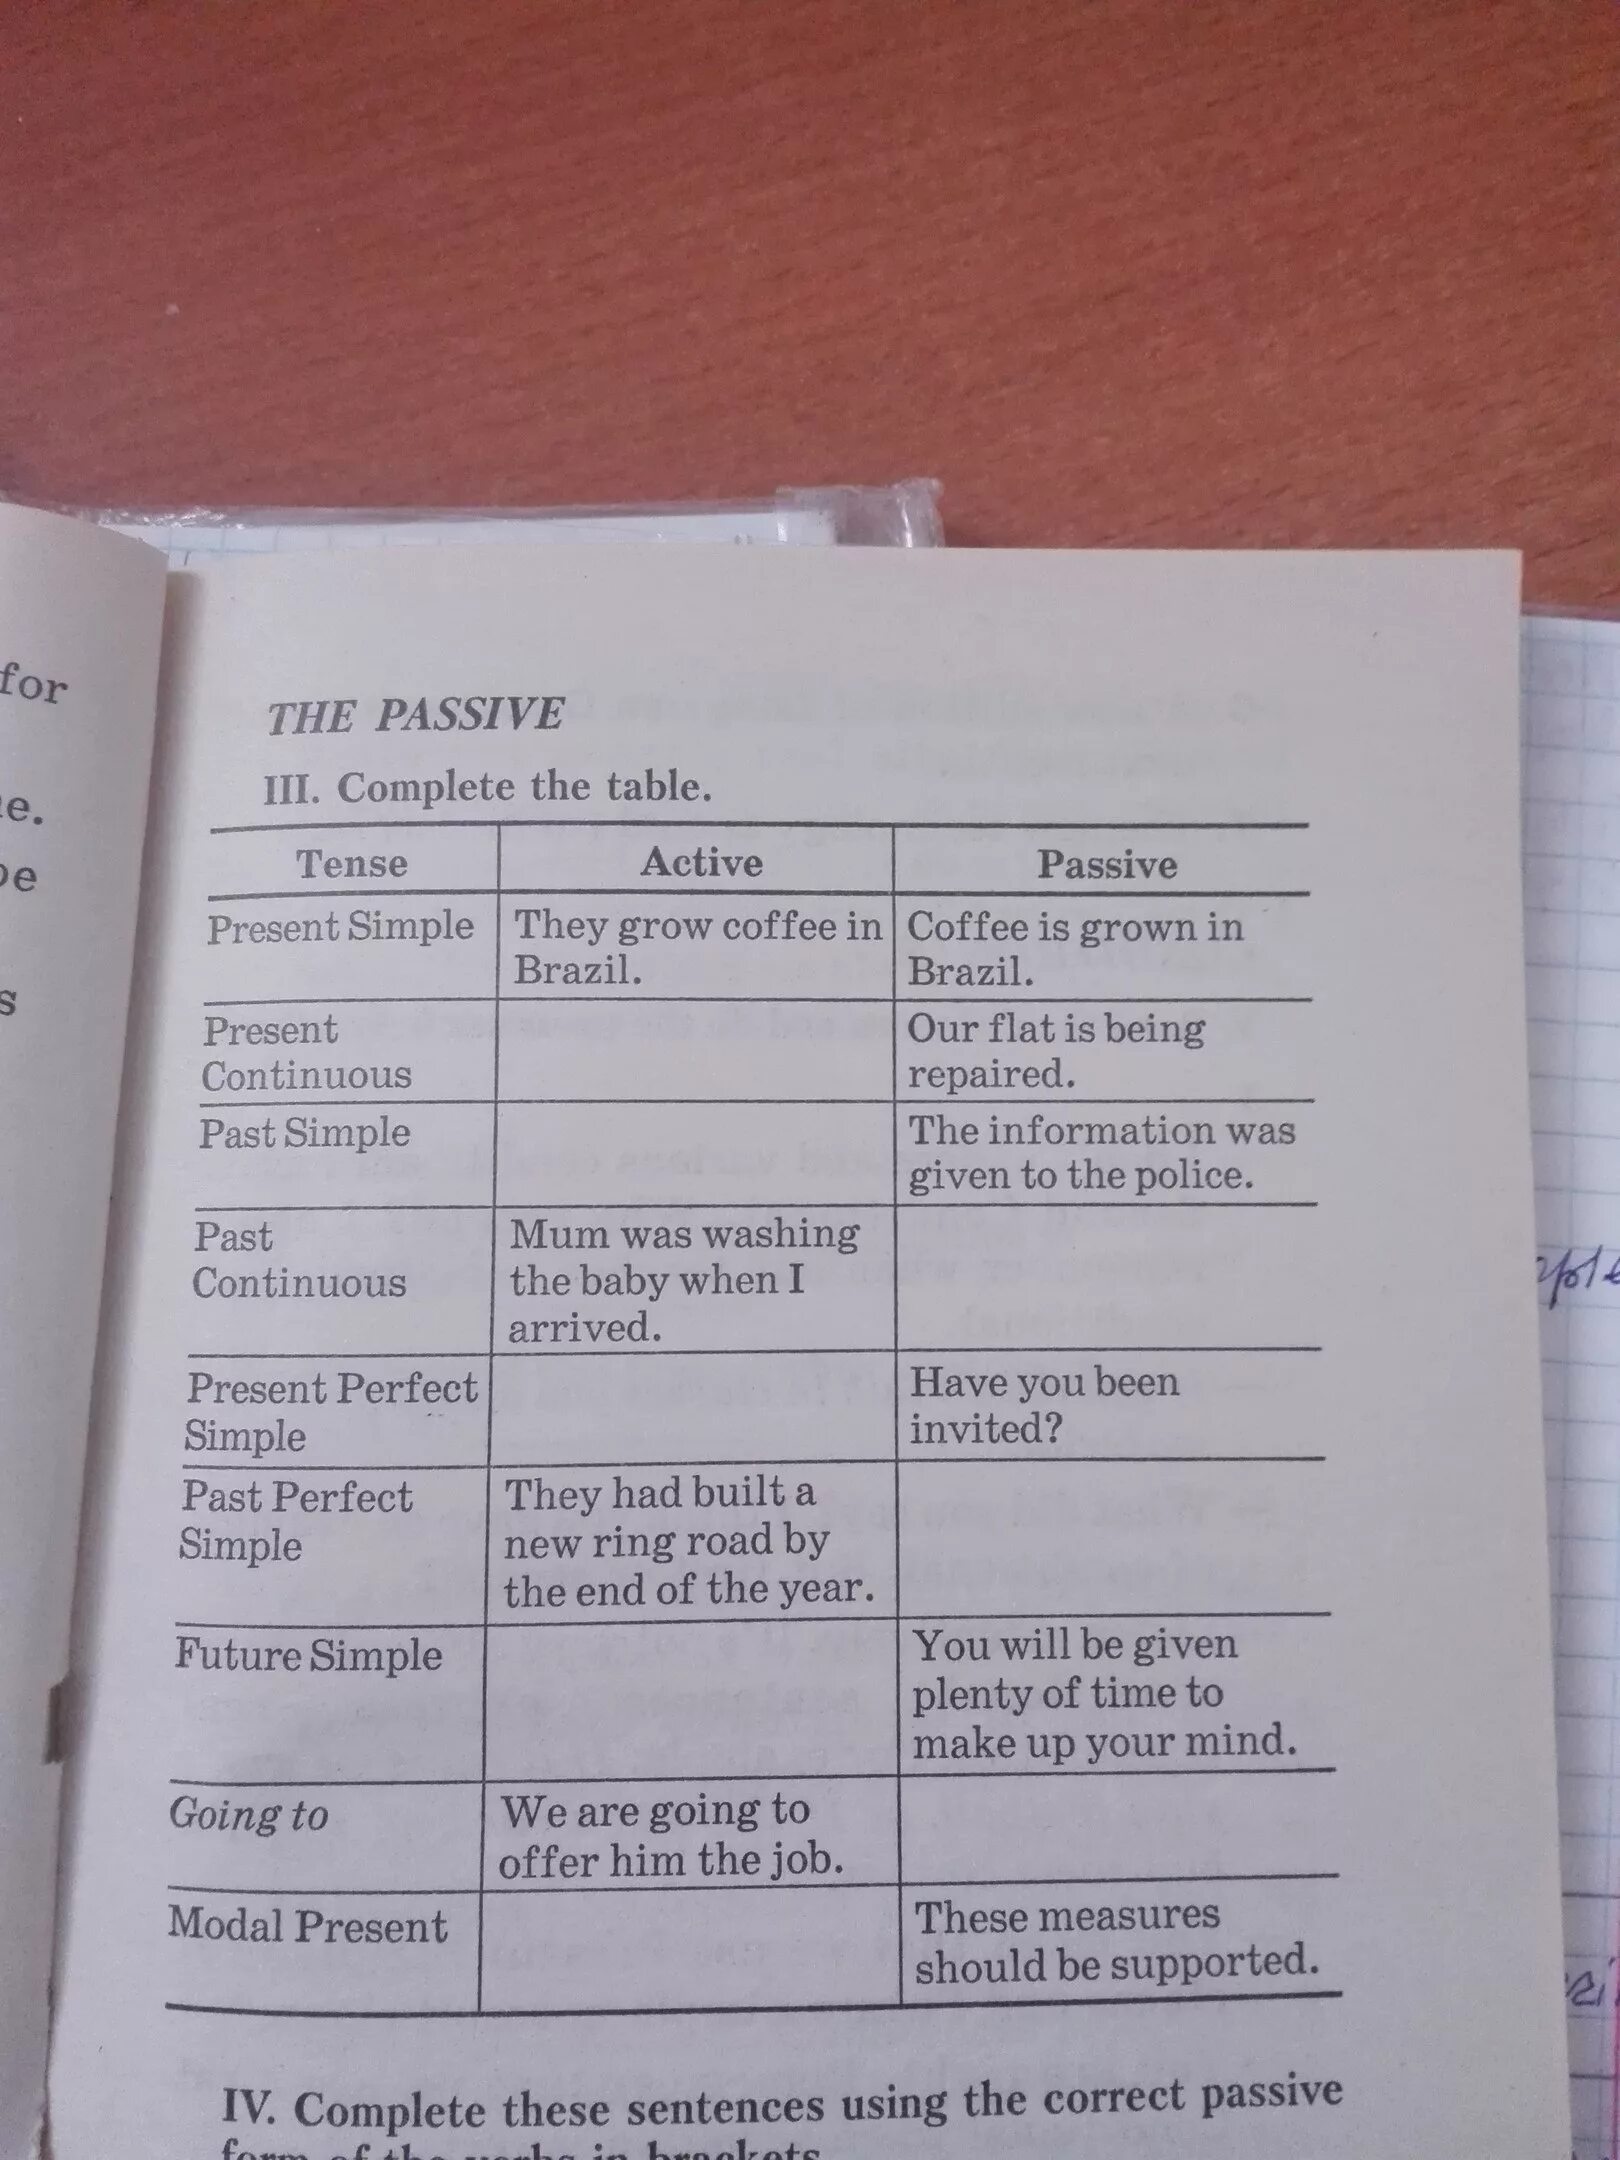 for
e.
be
s
THE PASSIVE
III. Complete the table.
Tense Active Passive
Present Simple They grow coffee in Coffee is grown in
Brazil. Brazil.
Present Our flat is being
Continuous repaired.
Past Simple The information was
given to the police.
Past Mum was washing
Continuous the baby when I
arrived.
Present Perfect Have you been
Simple invited?
Past Perfect They had built a
Simple new ring road by
the end of the year.
Future Simple You will be given
plenty of time to
make up your mind.
Going to We are going to
offer him the job.
Modal Present These measures
should be supported.
IV. Complete these sentences using the correct passive
form of the verbs in brackets.